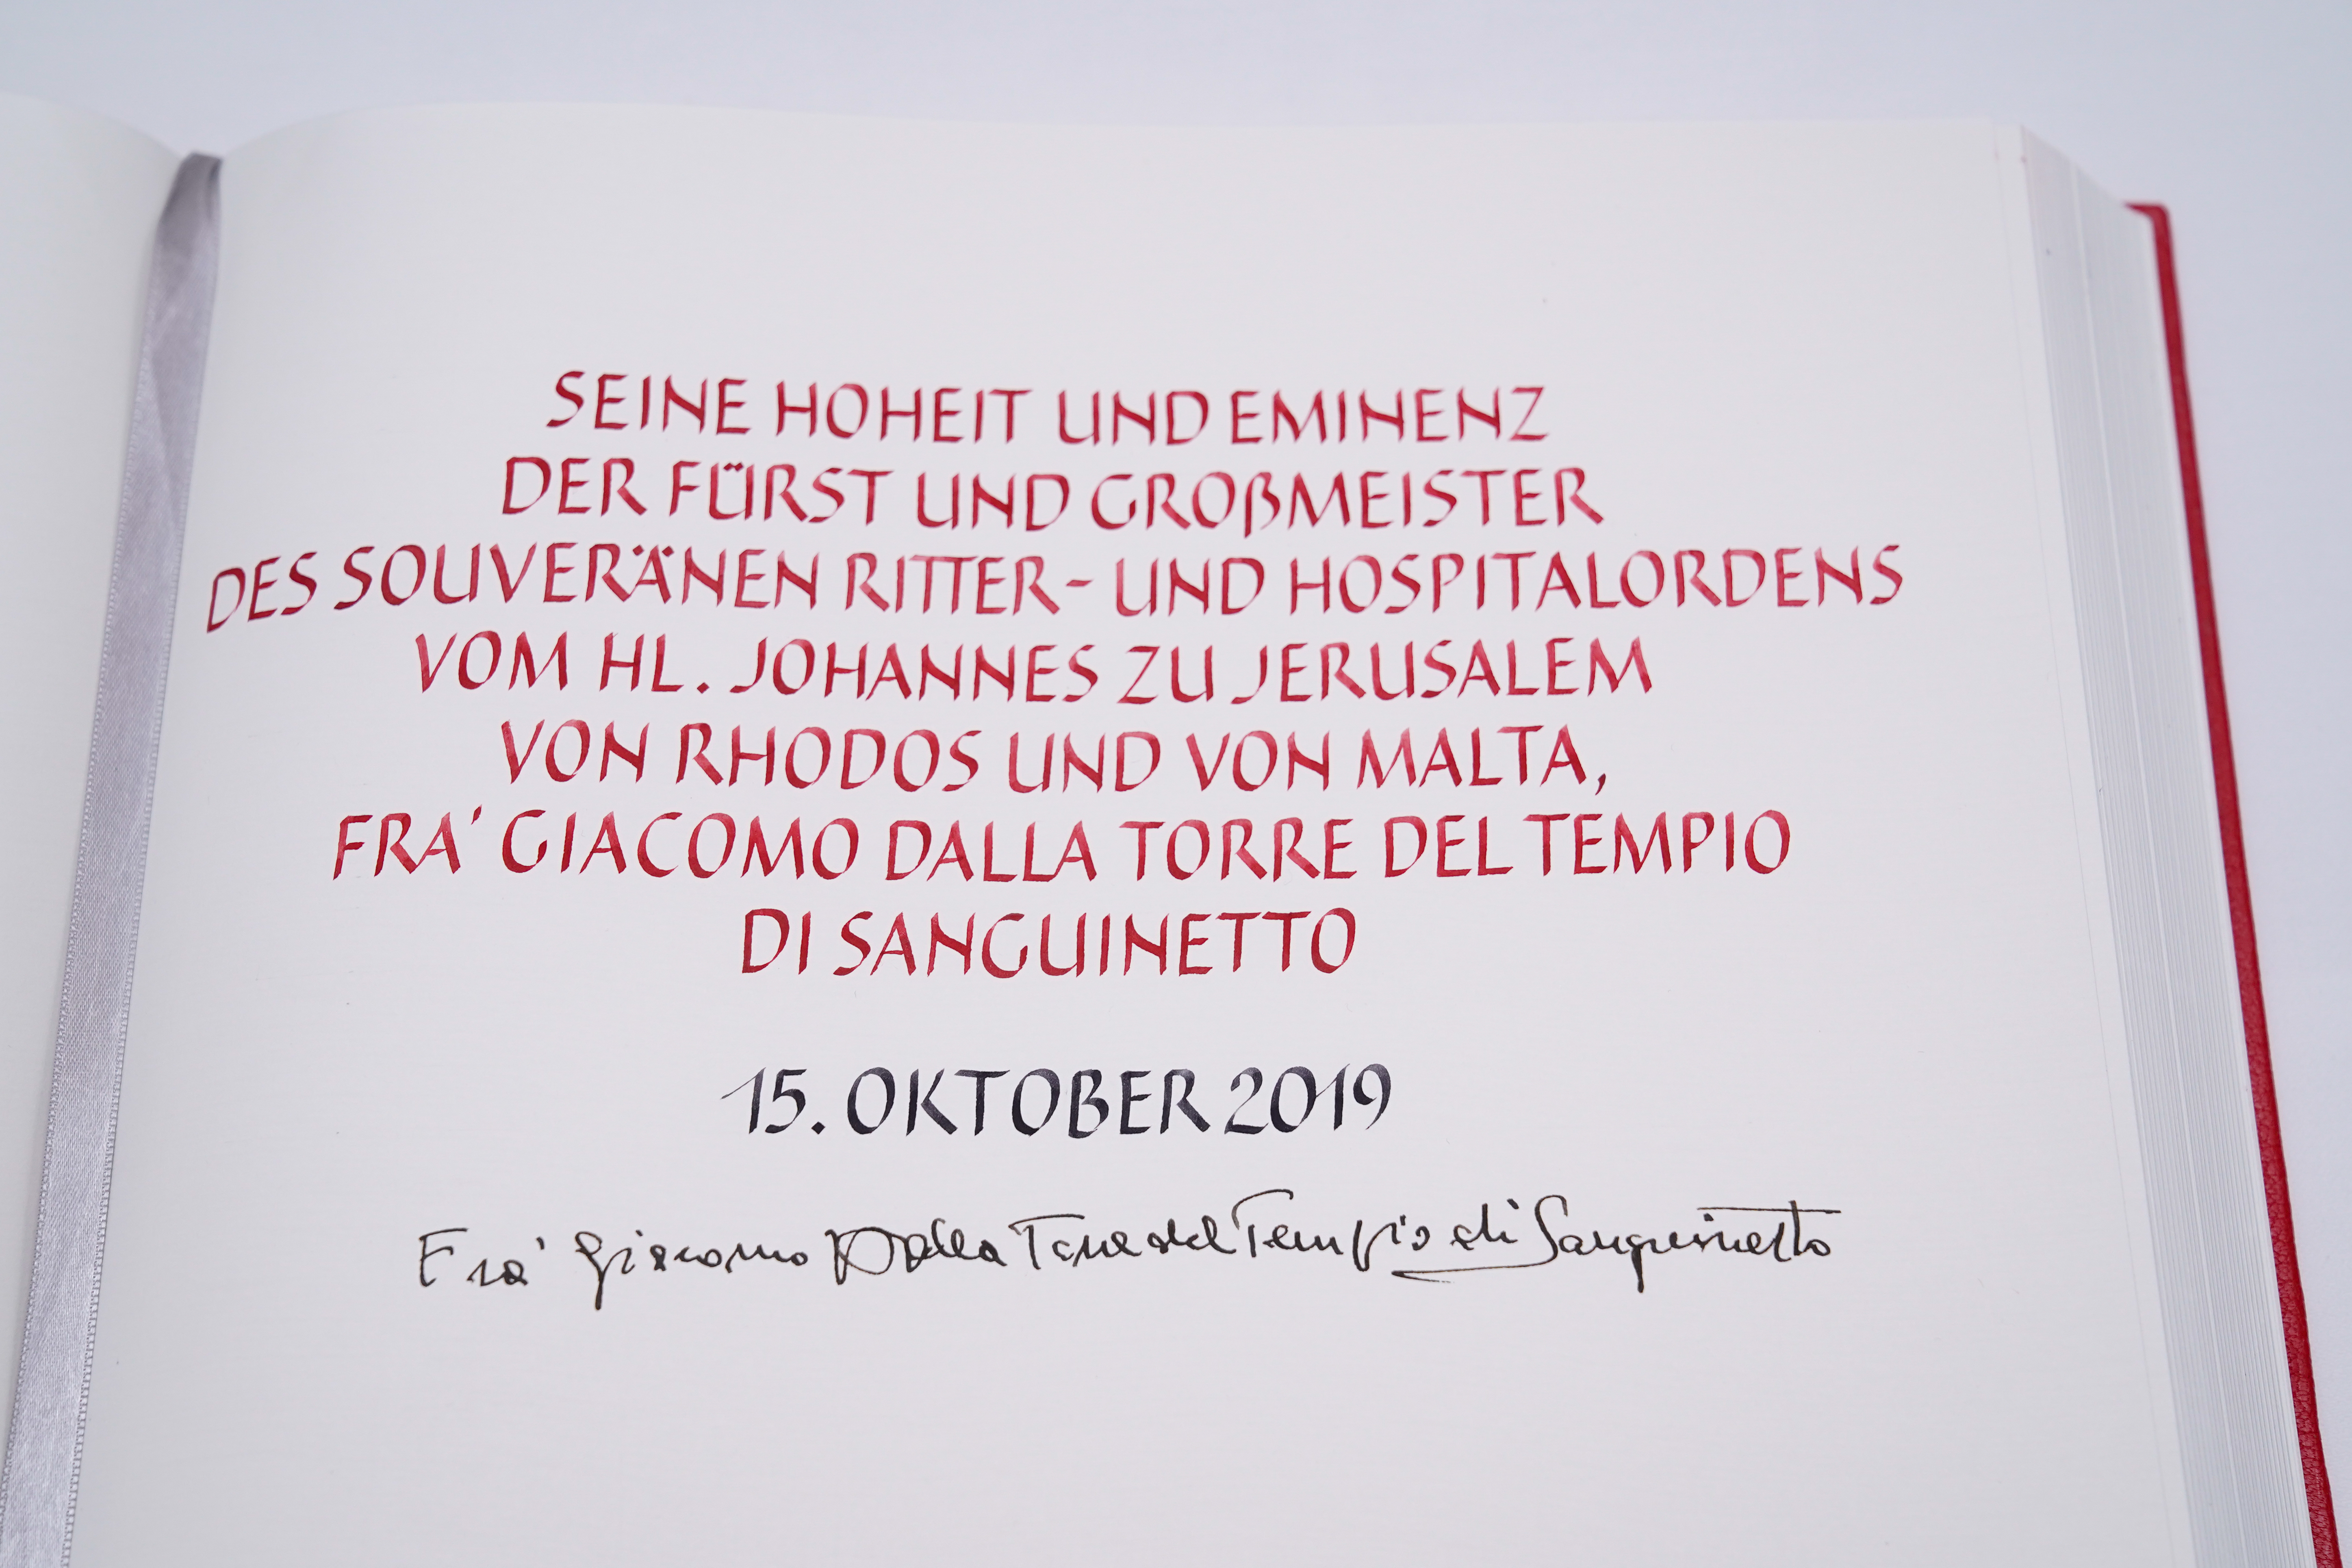 SEINE HOHEIT UND EMINENZ
DER FÜRST UND GROßMEISTER
DES SOUVERÄNEN RITTER- UND HOSPITALORDENS
VOM HL. JOHANNES ZU JERUSALEM
VON RHODOS UND VON MALTA,
FRA' GIACOMO DALLA TORRE DEL TEMPIO
DI SANGUINETTO
15. OKTOBER 2019
Fra' Giacomo Dalla Torre del Tempio di Sanguinetto